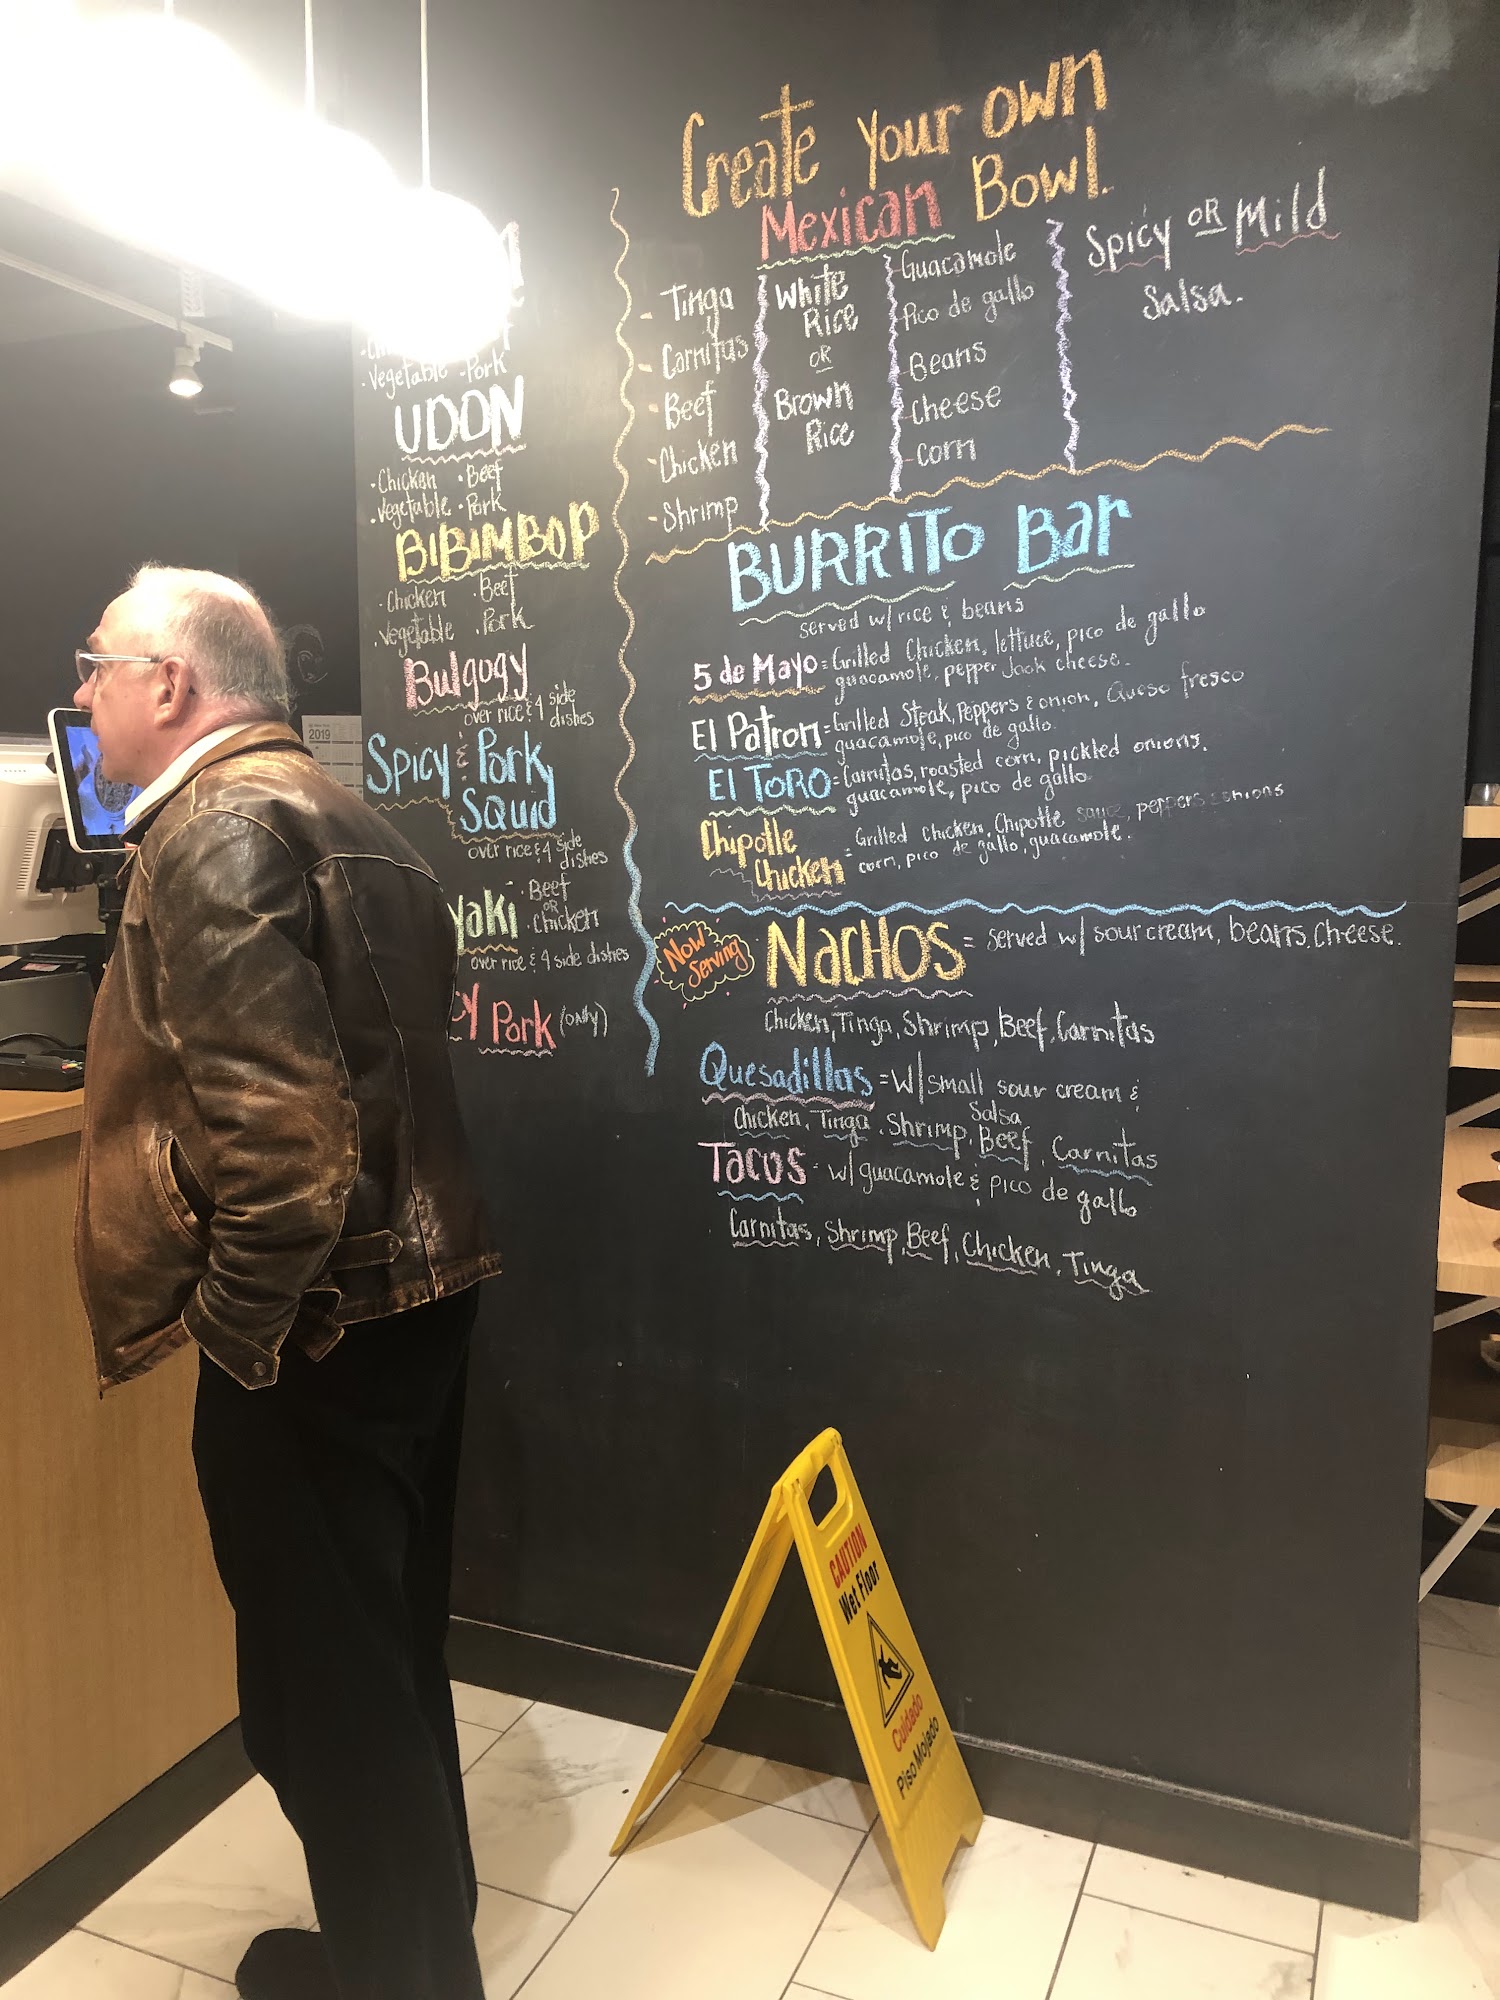 Create Your Own
Mexican Bowl.
- Tinga
- Carnitas
- Beef
- Chicken
- Shrimp
White
Rice
OR
Brown
Rice
- Guacamole
- Pico de gallo
- Beans
- Cheese
- Corn
Spicy OR Mild
Salsa.
. Vegetable . Pork
UDON
. Chicken . Beef
. Vegetable . Pork
BIBIMBOP
. Chicken . Beef
. Vegetable . Pork
Bulgogy
over rice & 4 side
dishes
Spicy & Pork
Squid
over rice & 4 side
dishes
yaki . Beef
OR
. Chicken
over rice & 4 side dishes
Pork (only)
BURRITO Bar
served w/ rice & beans
5 de Mayo = Grilled Chicken, lettuce, pico de gallo
guacamole, pepper Jack cheese.
El Patron = Grilled Steak, Peppers & onion, Queso fresco
guacamole, pico de gallo.
El TORO = Carnitas, roasted corn, pickled onions.
guacamole, pico de gallo
Chipotle
Chicken = Grilled chicken, Chipotle sauce, peppers & onions
corn, pico de gallo, guacamole.
Now
Serving
NACHOS = served w/ sour cream, beans, cheese.
Chicken, Tinga, Shrimp, Beef, Carnitas
Quesadillas = W/ small sour cream &
Salsa
Chicken, Tinga, Shrimp, Beef, Carnitas
TACOS = w/ guacamole & pico de gallo
Carnitas, Shrimp, Beef, Chicken, Tinga
2019
CAUTION
Wet Floor
Cuidado
Piso Mojado